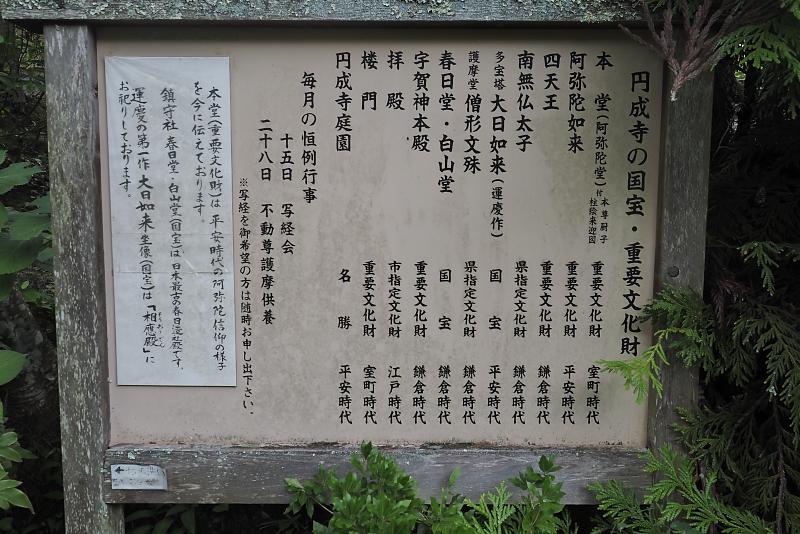 円成寺の国宝・重要文化財
本堂(阿弥陀堂)付 本尊厨子 柱絵来迎図 重要文化財 室町時代
阿弥陀如来 重要文化財 平安時代
四天王 重要文化財 鎌倉時代
南無仏太子 県指定文化財 鎌倉時代
多宝塔 大日如来(運慶作) 国宝 平安時代
護摩堂 僧形文殊 県指定文化財 鎌倉時代
春日堂・白山堂 国宝 鎌倉時代
宇賀神本殿 重要文化財 鎌倉時代
拝殿 市指定文化財 江戸時代
楼門 重要文化財 室町時代
円成寺庭園 名勝 平安時代
毎月の恒例行事
十五日 写経会
二十八日 不動尊護摩供養
※写経を御希望の方は随時お申し出下さい。
本堂(重要文化財)は平安時代の阿弥陀信仰の様子
を今に伝えております。
鎮守社 春日堂・白山堂(国宝)は日本最古の春日造社殿です。
運慶の第一作 大日如来坐像(国宝)は「相應殿」に
お祀りしております。